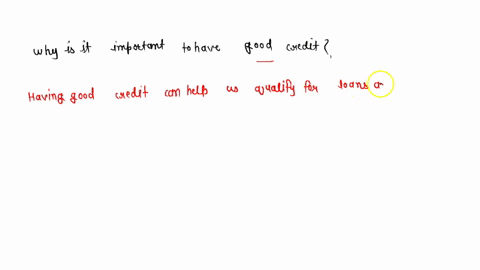 why is it important to have good credit?
Having good credit can help us qualify for loans a